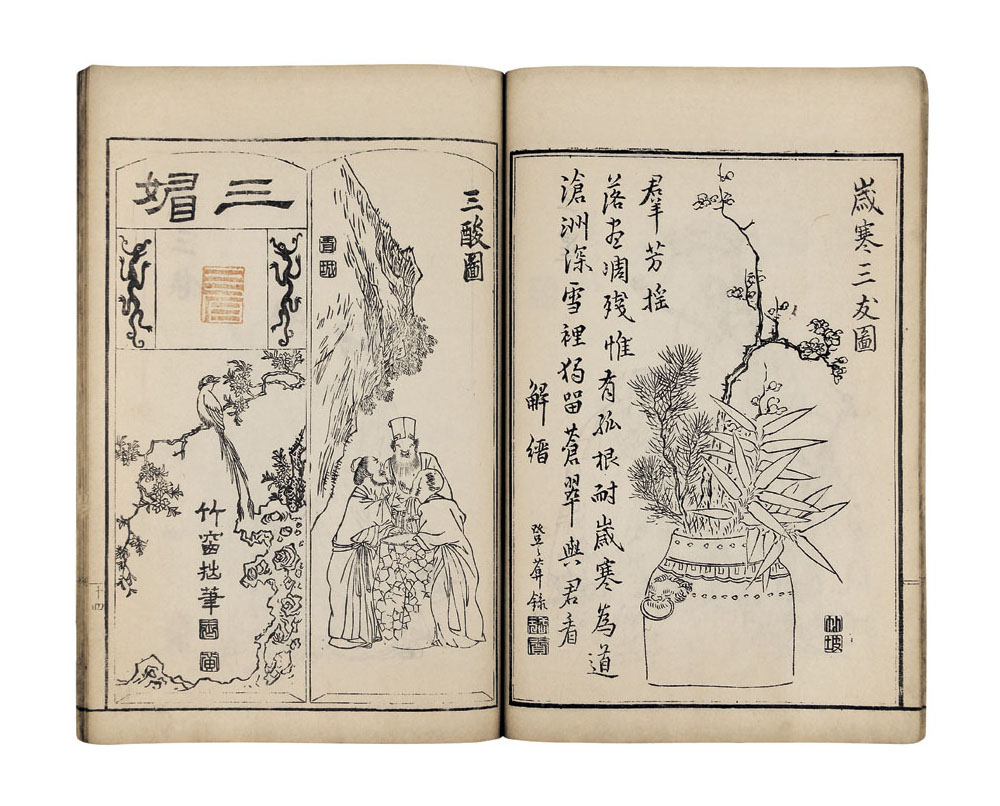 歲寒三友圖
羣芳搖
落盡凋殘惟有孤根耐歲寒為道
滄洲深雪裡獨留蒼翠與君看
解縉
竹坡
三酸圖
青城
三媚
竹窗拙筆
十四